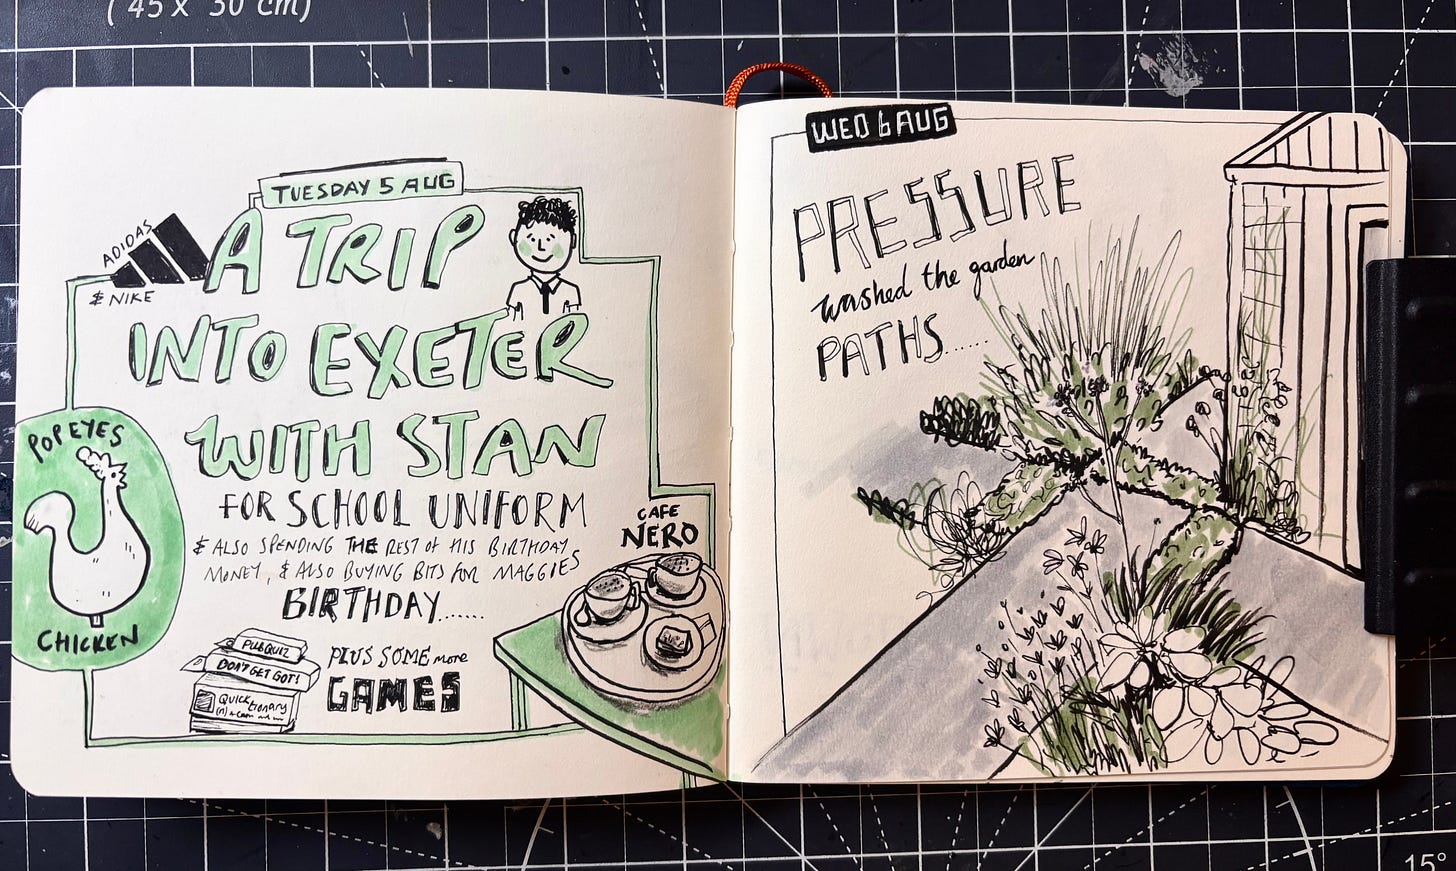 (45 x 30 cm)
TUESDAY 5 AUG
ADIDAS
& NIKE
A TRIP
INTO EXETER
WITH STAN
FOR SCHOOL UNIFORM
& ALSO SPENDING THE REST of HIS BIRTHDAY
MONEY, & ALSO BUYING BITS FOR MAGGIES
BIRTHDAY.......
POPEYES
CHICKEN
CAFE
NERO
PUB QUIZ
DON'T GET GOT!
Quick
tionary
PLUS SOME more
GAMES
WED 6 AUG
PRESSURE
washed the garden
PATHS......
15°